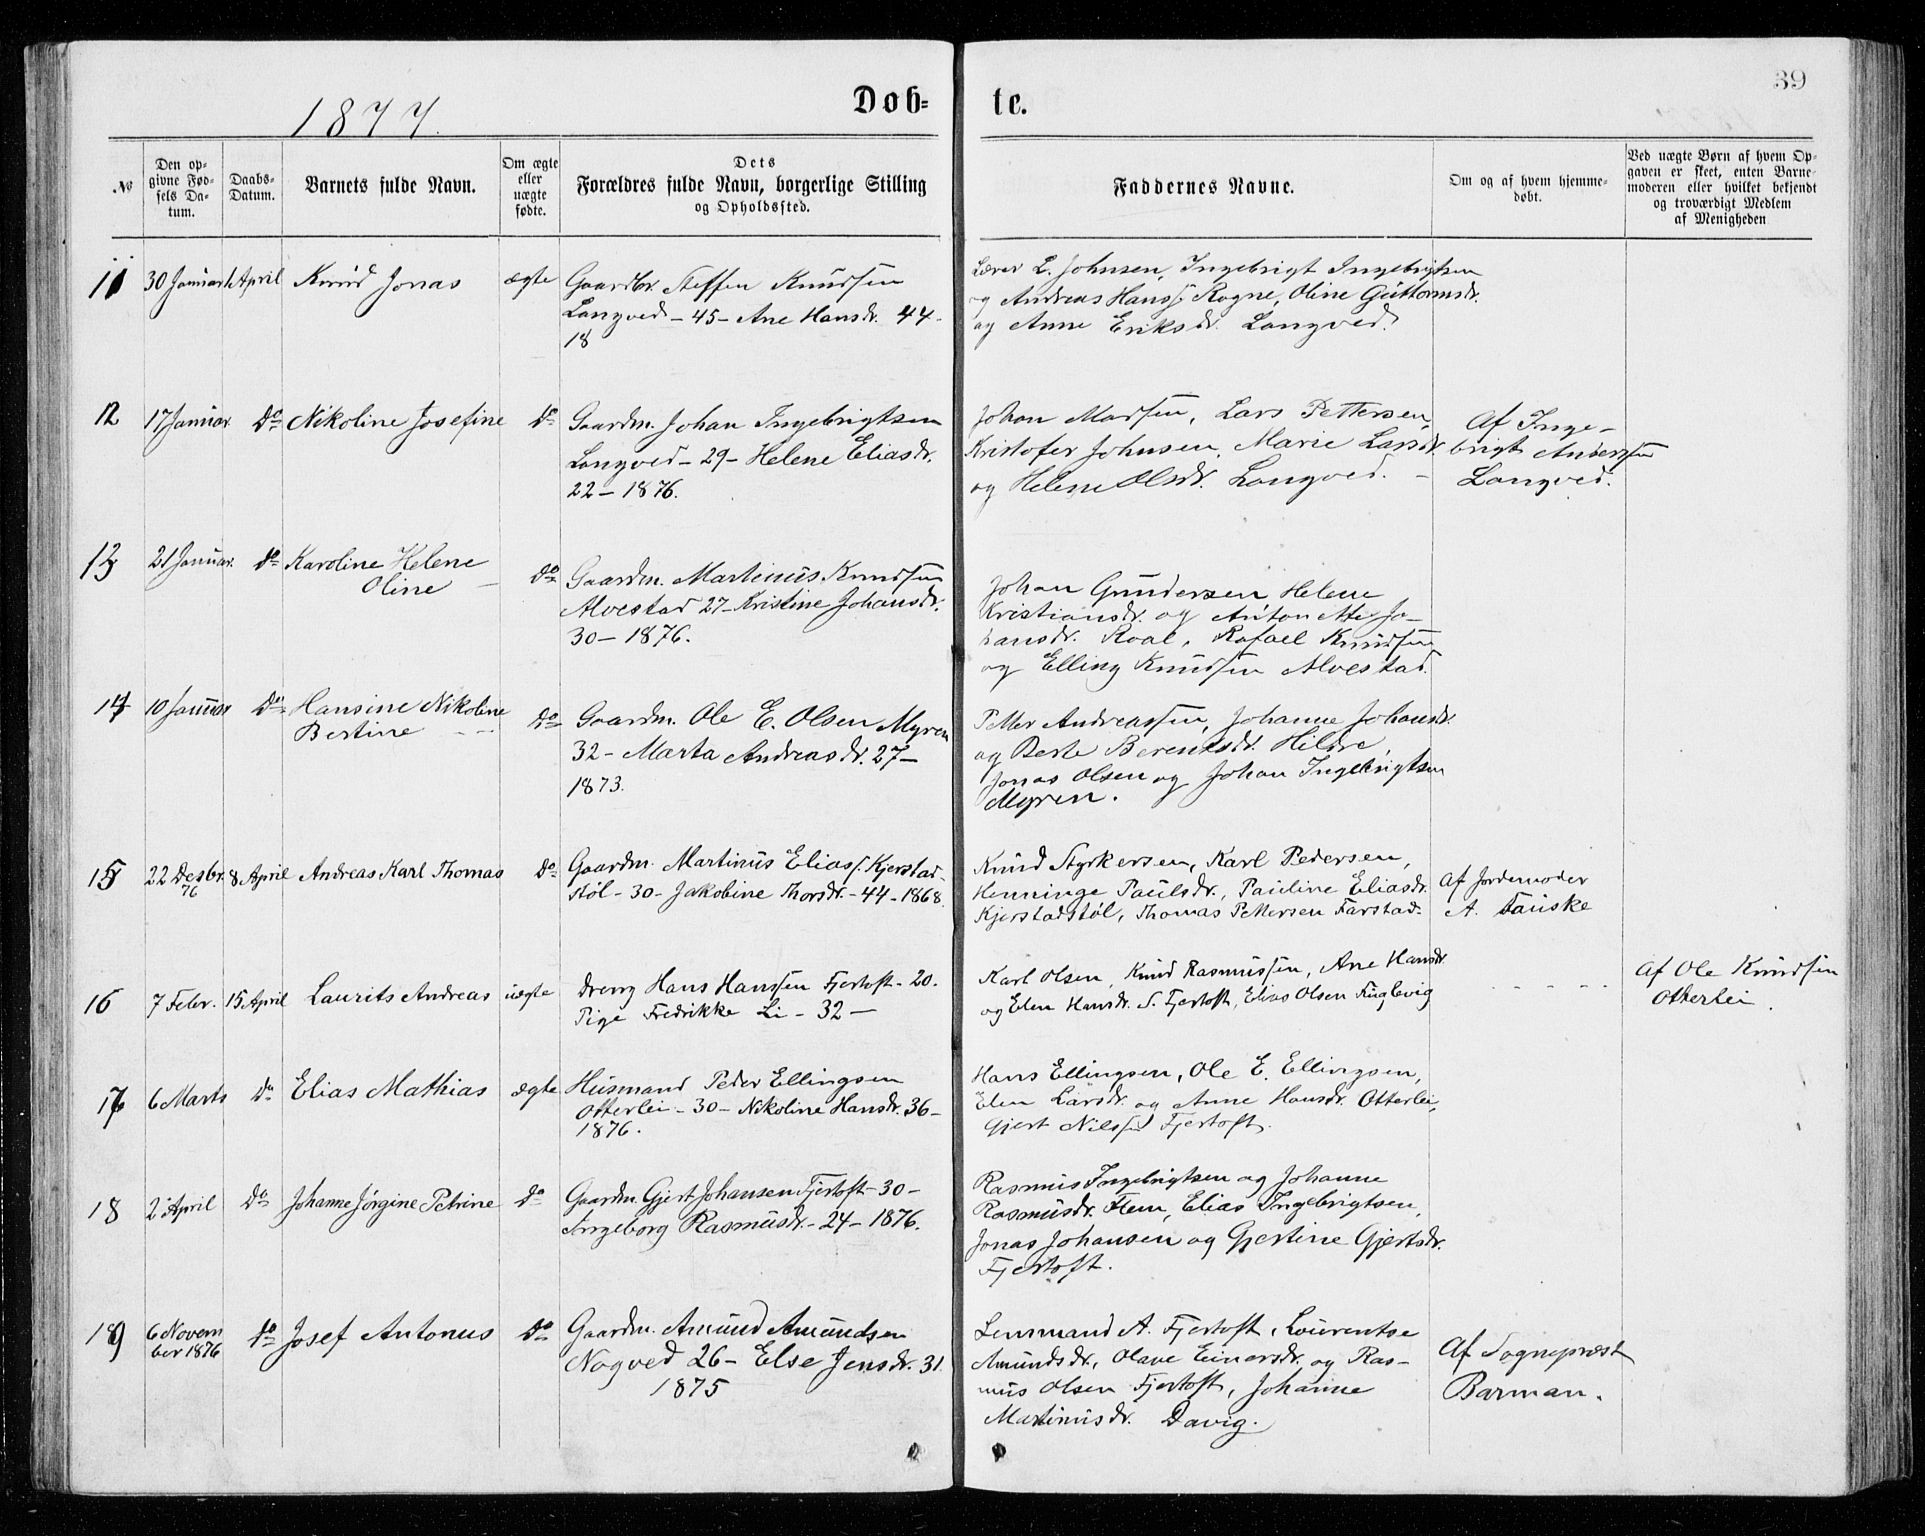 39
1877.
Døb-
te.
No
Den op-
givne Fød-
sels Da-
tum.
Daabs-
Datum.
Barnets fulde Navn.
Om ægte
eller
uægte
fødte.
Dets
Forældres fulde Navn, borgerlige Stilling
og Opholdssted.
Faddernes Navne.
Om og af hvem hjemme-
døbt.
Ved uægte Børn af hvem Op-
gaven er skeet, enten Barne-
moderen eller hvilket bekjendt
og troværdigt Medlem
af Menigheden
11
30 Januar
1 April
Knud Jonas
ægte
Gaardbr. Steffen Knudsen
Longved - 45 - Ane Hansdr. 44 -
18
Lærer L. Johnsen, Ingebrigt Ingebrigtsen
og Andreas Hanss. Rogne, Oline Guttormsdr.
og Anne Eriksdr. Longved.
12
17 Januar
Do
Nikoline Josefine
Do
Gaardm. Johan Ingebrigtsen
Longved - 29 - Helene Eliasdr.
22 - 1876.
Johan Madsen, Lars Pettersen,
Kristofer Johnsen, Marie Larsdr.
og Helene Olsdr. Longved. -
Af Inge-
brigt Anderssen
Longved.
13
21 Januar.
Do
Karoline Helene
Oline -
Do
Gaardm. Martinus Knudsen
Alvestad 27 - Kristine Johansdr.
30 - 1876.
Johan Gundersen Helene
Kristiansdr. og Antonette Jo-
hansdr. Roal, Rafael Knudsen
og Elling Knudsen Alvestad.
14
10 Januar
Do
Hansine Nikoline
Bertine - -
Do
Gaardm. Ole E. Olsen Myren
32 - Marta Andreasdr. 27 -
1873.
Petter Andreassen, Johanne Johansdr.
og Berte Berentsdr. Hildre,
Jonas Olsen og Johan Ingebrigtsen
Myren.
15
22 Desbr.
76
8 April
Andreas Karl Thomas
Do
Gaardm. Martinus Eliass. Kjerstad-
støl - 30 - Jakobine Thorsdr. - 44 - 1868.
Knud Styrkersen, Karl Pedersen,
Henninge Paulsdr., Pauline Eliasdr.
Kjerstadstøl, Thomas Pettersen Farstad.
Af Jordemoder
A. Tauske
16
7 Febr.
15 April
Laurits Andreas
uægte
Dreng Hans Hanssen Fjertoft - 20.
Pige Fredrikke Li - 32 -
Karl Olsen, Knud Rasmussen, Ane Hansdr.
og Elen Hansdr. S. Fjertoft, Elias Olsen Fuglevig
- - - - -
Af Ole Knudsen
Otterlei.
17
6 Marts
Do
Elias Mathias
ægte
Husmand Peder Ellingsen
Otterlei - 30 - Nikoline Hansdr. 36 -
1876.
Hans Ellingsen, Ole E. Ellingsen,
Elen Larsdr. og Anne Hansdr. Otterlei,
Gjert Nilssen Fjertoft.
18
2 April
Do
Johanne Jørgine Petrine
Do
Gaardm. Gjert Johansen Fjertoft - 30 -
Ingeborg Rasmusdr. - 24 - 1876.
Rasmus Ingebrigtsen og Johanne
Rasmusdr. Flem, Elias Ingebrigtsen,
Jonas Johansen og Gjertine Gjertsdr.
Fjertoft.
19
6 Novem
ber 1876
Do
Josef Antonus
Do
Gaardm. Amund Amundsen
Nogved 26 - Else Jensdr. 31
1875
Lensmand A. Fjertoft, Lourentse
Amundsdr., Olave Einersdr. og Ras-
mus Olsen Fjertoft, Johanne
Martinusdr. Davig.
Af Sogneprest
Barman.